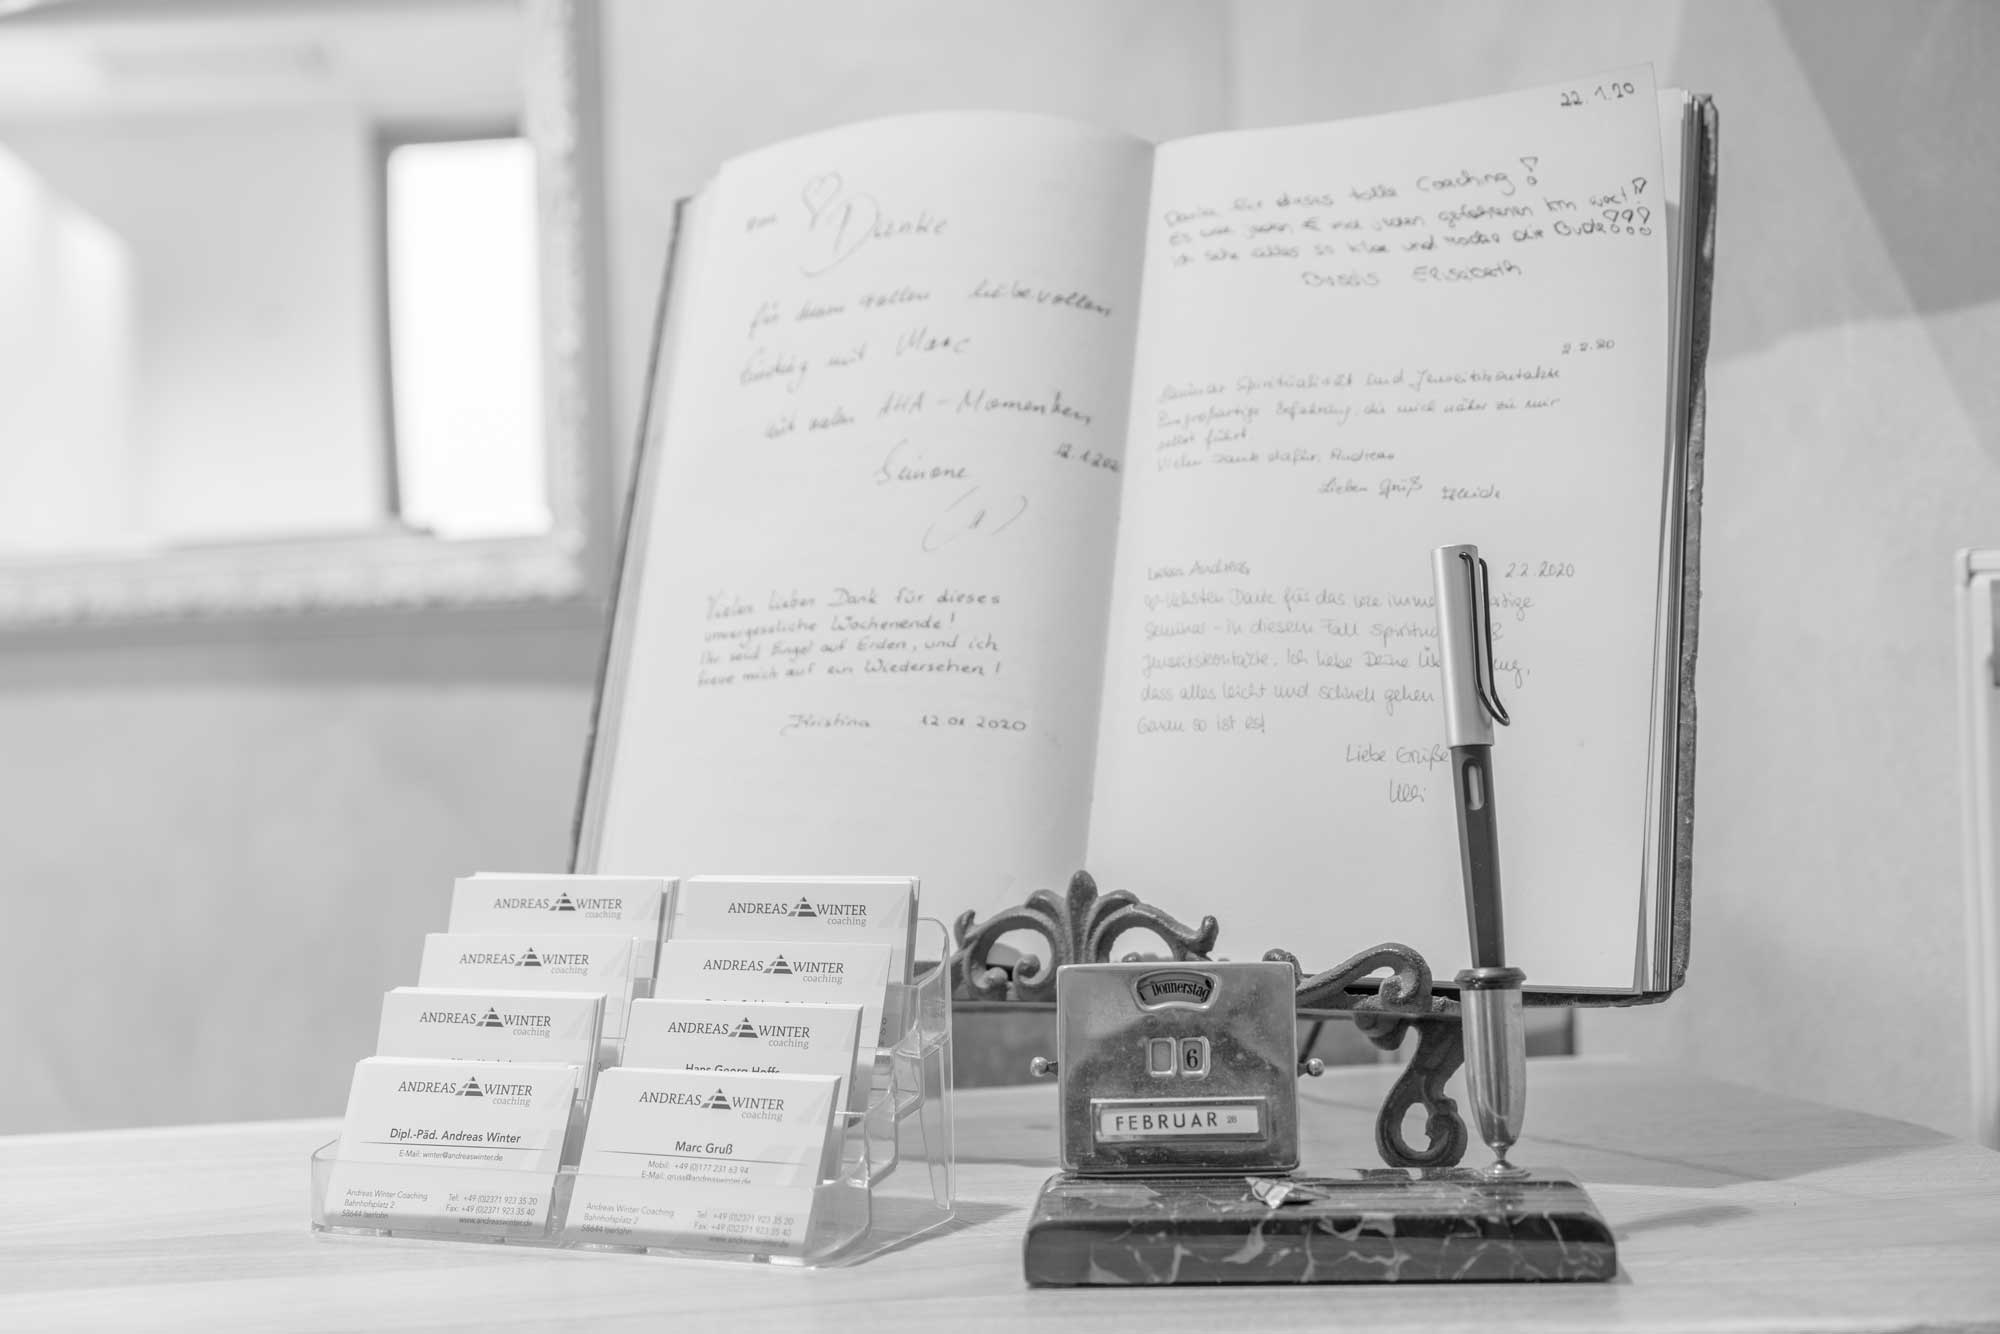 Danke
für
liebevollen
mit Marc
mit vielen AHA-Momenten,
Simone
12.1.202
Vielen lieben Dank für dieses
unvergessliche Wochenende!
Ihr seid Engel auf Erden, und ich
freue mich auf ein Wiedersehen!
Kristina 12.01.2020
22.1.20
Danke für dieses tolle Coaching!
Es war jeden € und jeden gefahrenen km wert!
ich sehe alles so klar und die Bude!!!
Elisabeth
2.2.20
Seminar Spiritualität und Jenseitskontakte
Eine großartige Erfahrung, die mich näher zu mir
selbst führt.
Vielen Dank dafür, Andreas
Lieben Gruß
Lieber Andreas, 2.2.2020
Dank für das wie imme artige
Seminar - in diesem Fall Spiritu &
Jenseitskontakte. Ich liebe Deine Üb ung,
dass alles leicht und schnell gehen
Genau so ist es!
Liebe Grüße
ANDREAS WINTER
coaching
ANDREAS WINTER
coaching
ANDREAS WINTER
coaching
ANDREAS WINTER
coaching
ANDREAS WINTER
coaching
ANDREAS WINTER
coaching
Hans Georg
ANDREAS WINTER
coaching
Dipl.-Päd. Andreas Winter
E-Mail: winter@andreaswinter.de
Andreas Winter Coaching
Bahnhofsplatz 2
58644 Iserlohn
Tel: +49 (0)2371 923 35 20
Fax: +49 (0)2371 923 35 40
www.andreaswinter.de
ANDREAS WINTER
coaching
Marc Gruß
Mobil: +49 (0)177 231 63 94
E-Mail: gruss@andreaswinter.de
Andreas Winter Coaching
Bahnhofsplatz 2
58644 Iserlohn
Tel: +49 (0)2371 923 35 20
Fax: +49 (0)2371 923 35 40
www.andreaswinter.de
Donnerstag
6
FEBRUAR 28